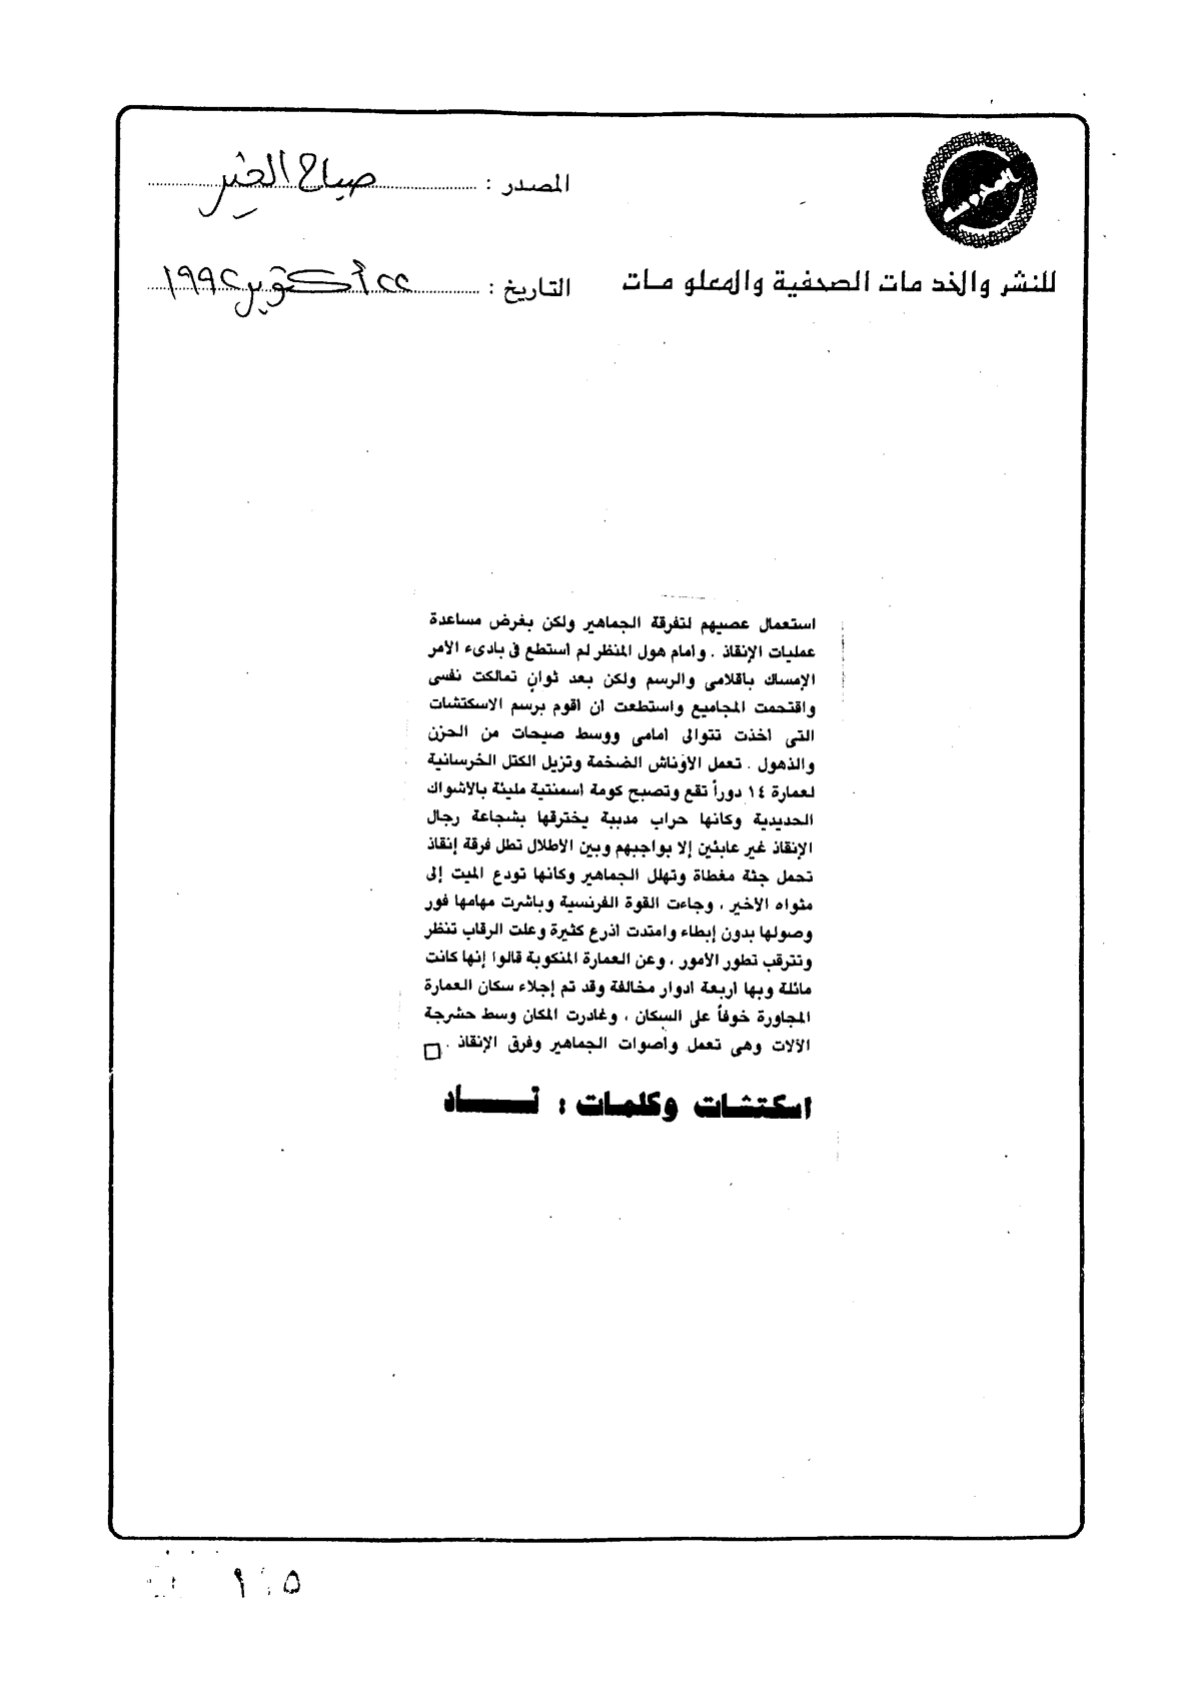 المصدر : صباح الخير
للنشر والخدمات الصحفية والمعلومات
التاريخ : ٢٢ أكتوبر ١٩٩٢
استعمال عصيهم لتفرقة الجماهير ولكن بغرض مساعدة
عمليات الإنقاذ . وامام هول المنظر لم استطع فى بادىء الأمر
الإمساك باقلامى والرسم ولكن بعد ثوانٍ تمالكت نفسى
واقتحمت المجاميع واستطعت ان اقوم برسم الاسكتشات
التى اخذت تتوالى امامى ووسط صيحات من الحزن
والذهول . تعمل الأوناش الضخمة وتزيل الكتل الخرسانية
لعمارة ١٤ دوراً تقع وتصبح كومة اسمنتية مليئة بالاشواك
الحديدية وكانها حراب مدببة يخترقها بشجاعة رجال
الإنقاذ غير عابئين إلا بواجبهم وبين الأطلال تطل فرقة إنقاذ
تحمل جثة مغطاة وتهلل الجماهير وكانها تودع الميت إلى
مثواه الأخير ، وجاءت القوة الفرنسية وباشرت مهامها فور
وصولها بدون إبطاء وامتدت اذرع كثيرة وعلت الرقاب تنظر
وتترقب تطور الأمور ، وعن العمارة المنكوبة قالوا إنها كانت
مائلة وبها اربعة ادوار مخالفة وقد تم إجلاء سكان العمارة
المجاورة خوفاً على السكان ، وغادرت المكان وسط حشرجة
الآلات وهى تعمل وأصوات الجماهير وفرق الإنقاذ . □
اسكتشات وكلمات : تـــاد